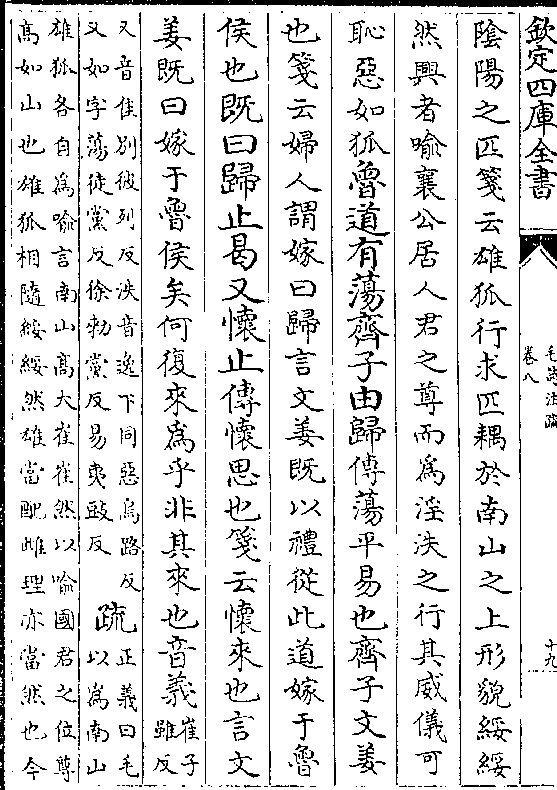 欽定四庫全書
毛詩注疏
卷八
十九
陰陽之匹箋云雄狐行求匹耦於南山之上形貌綏綏
然興者喻襄公居人君之尊而為淫泆之行其威儀可
恥惡如狐魯道有蕩齊子由歸傳蕩平易也齊子文姜
也箋云婦人謂嫁曰歸言文姜既以禮從此道嫁于魯
侯也既曰歸止曷又懷止傳懷思也箋云懷來也言文
姜既曰嫁于魯侯矣何復來為乎非其來也音義崔子
雖反
又音佳別彼列反泆音逸下同惡烏路反
又如字蕩徒黨反徐勑黨反易夷豉反
疏正義曰毛
以為南山
雄狐各自為喻言南山高大崔崔然以喻國君之位尊
高如山也雄狐相隨綏綏然雄當配雌理亦當然也今